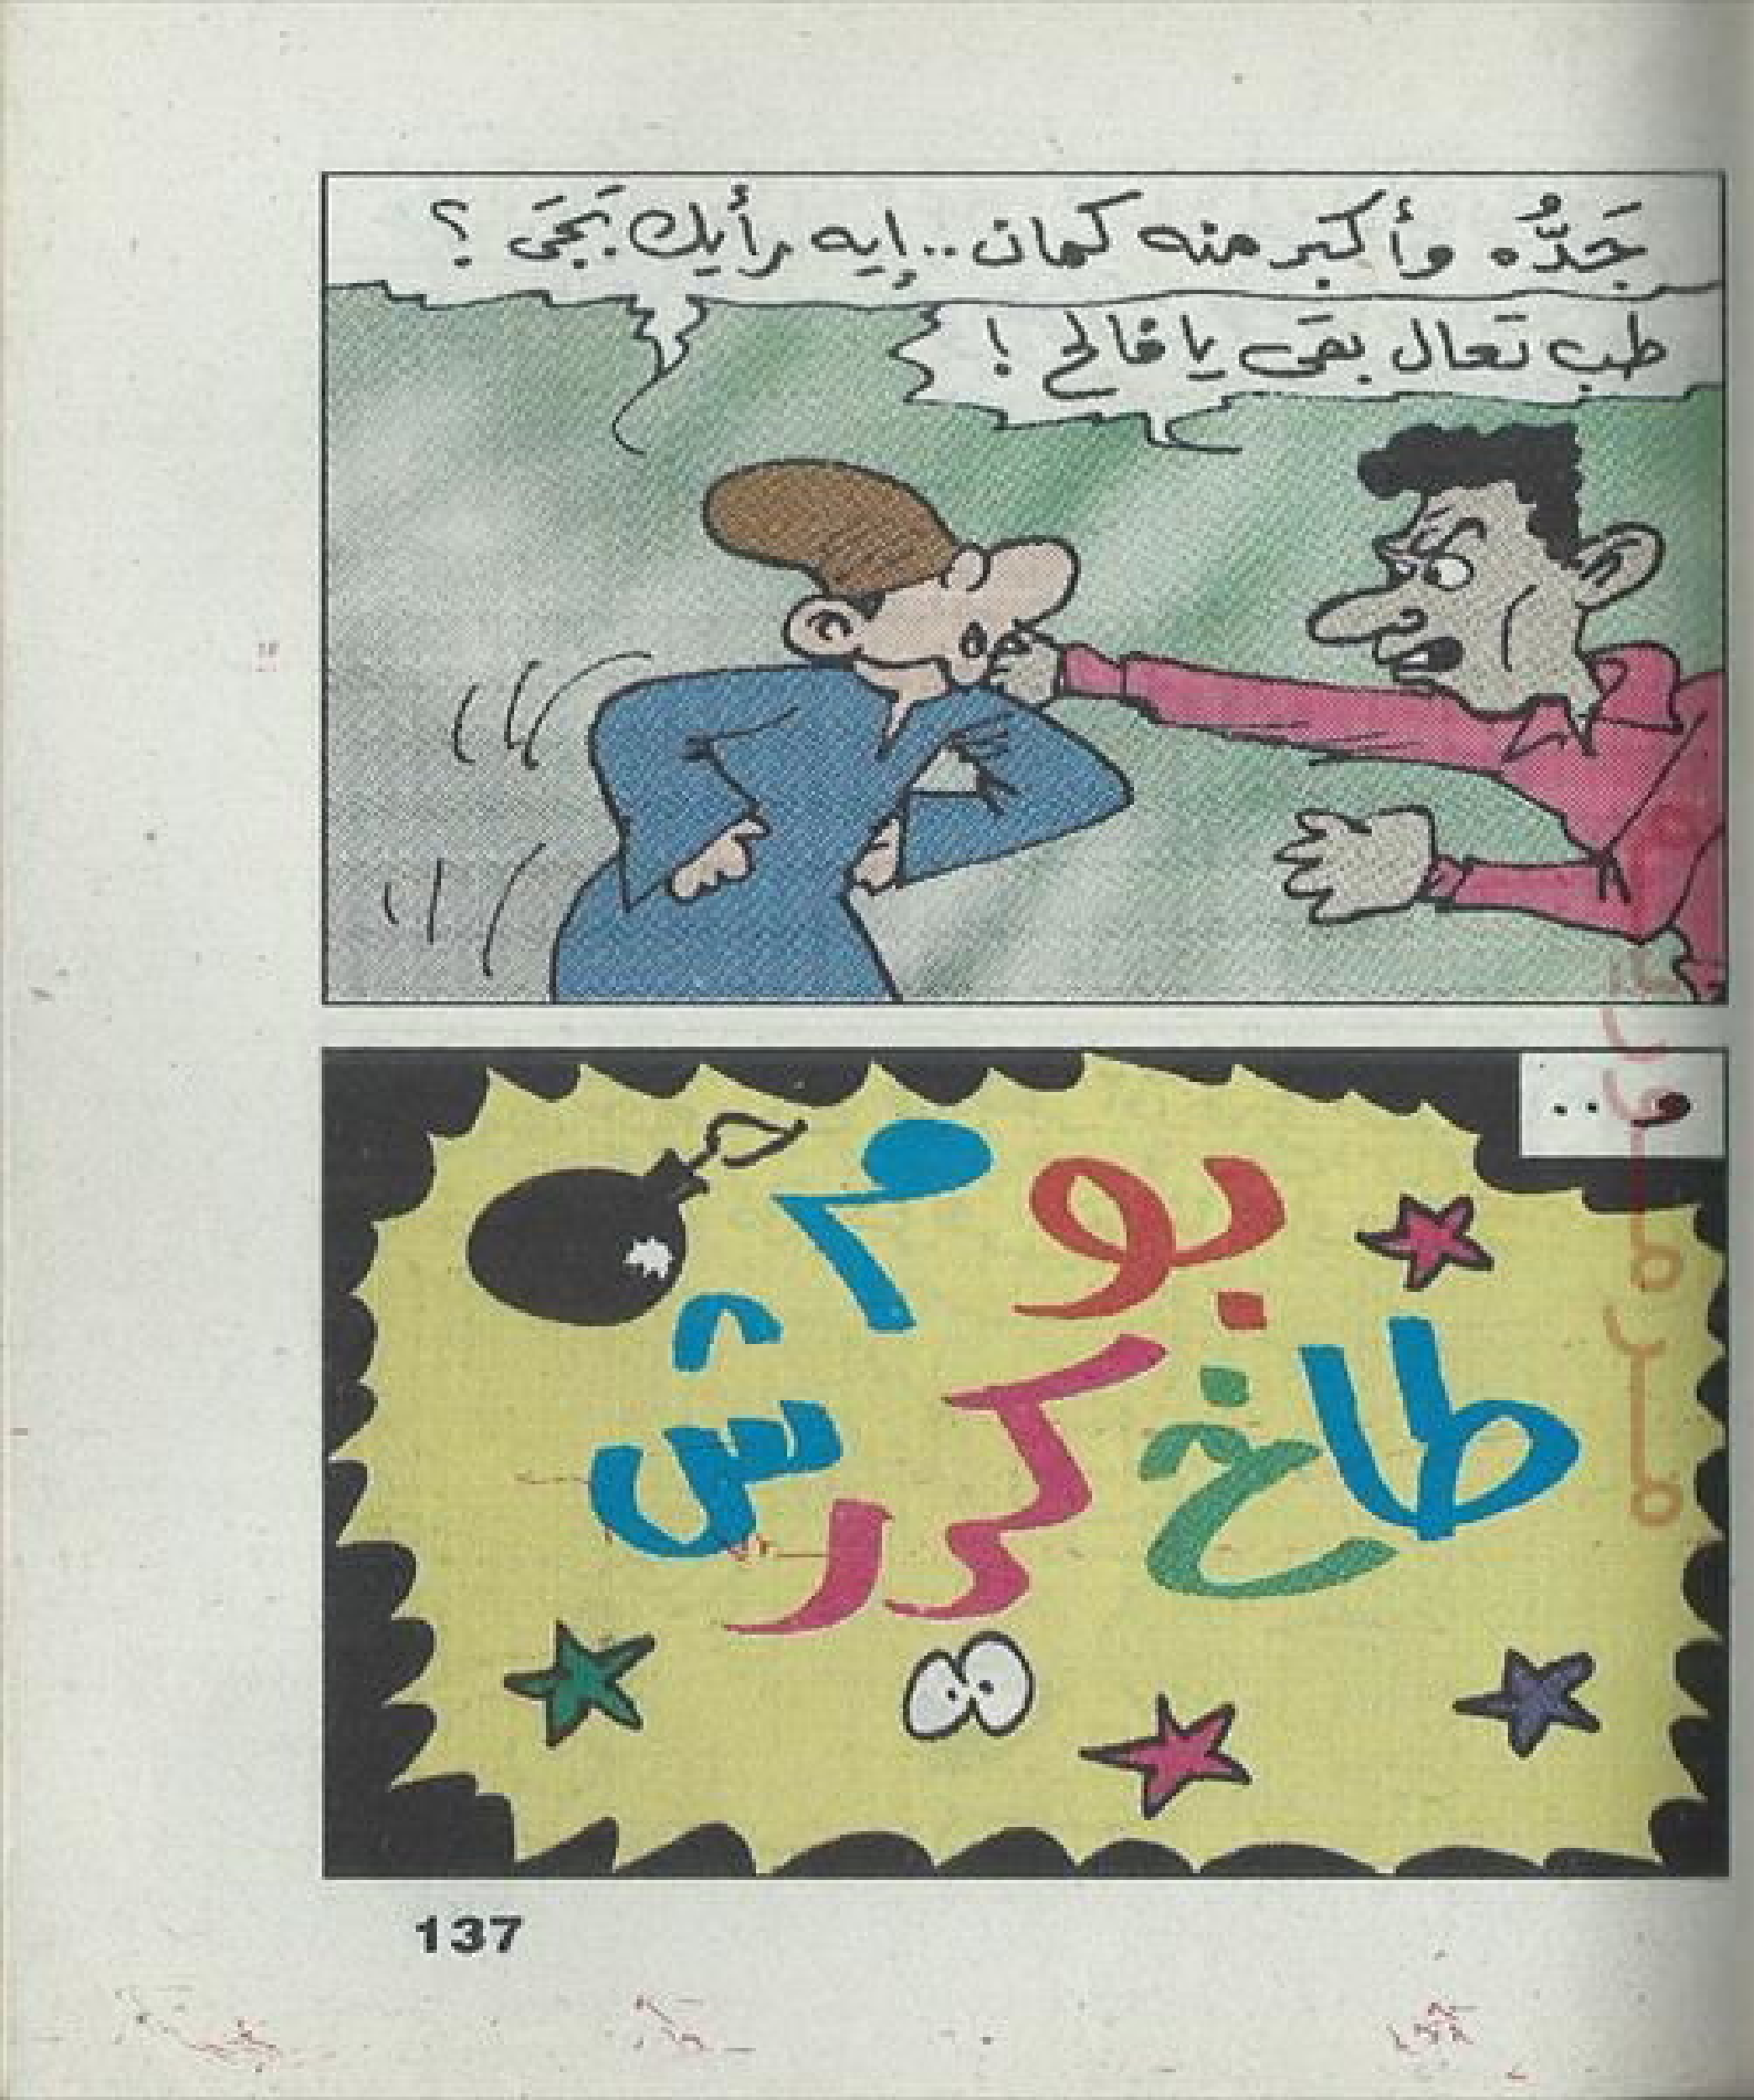 جَدُّه وأكبر منه كمان.. إيه رأيك بَجَى ؟
طب تَعال بقَى يا فالح !
و ..
بوم
طاخ كررش
137